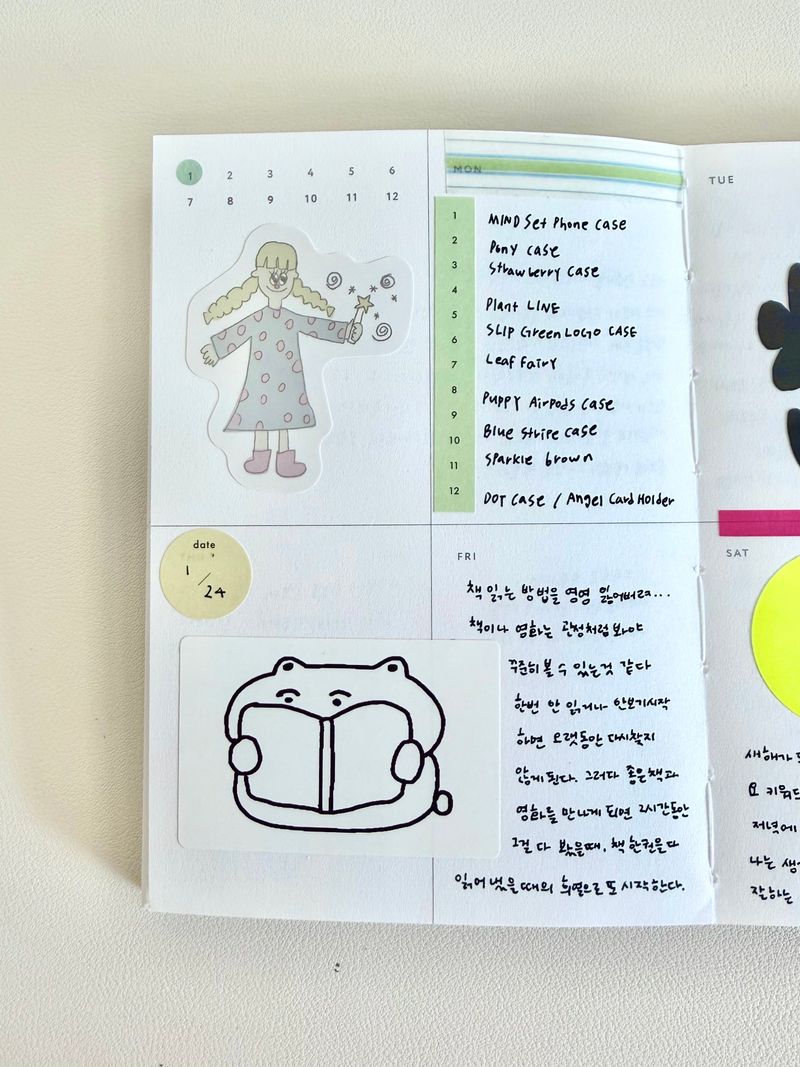 1 2 3 4 5 6
7 8 9 10 11 12
MON
TUE
1
2
3
4
5
6
7
8
9
10
11
12
MIND Set Phone Case
Pony Case
Strawberry Case
Plant LINE
SLIP Green LOGO CASE
Leaf Fairy
Puppy Airpods Case
Blue Stripe Case
Sparkle brown
DOT Case / Angel Card Holder
date
1/24
FRI
책 읽는 방법을 영영 잃어버려...
책이나 영화는 관정처럼 봐야
꾸준히 볼 수 있는것 같다
한번 안 읽거나 안보기시작
하면 오랫동안 다시찾지
않게 된다. 그러다 좋은책과
영화를 만나게 되면 2시간동안
그걸 다 봤을때, 책 한권을 다
읽어 냈을때의 희열으로 또 시작한다.
SAT
새해가
요 키워드
저녁에
나는 생
잘하는